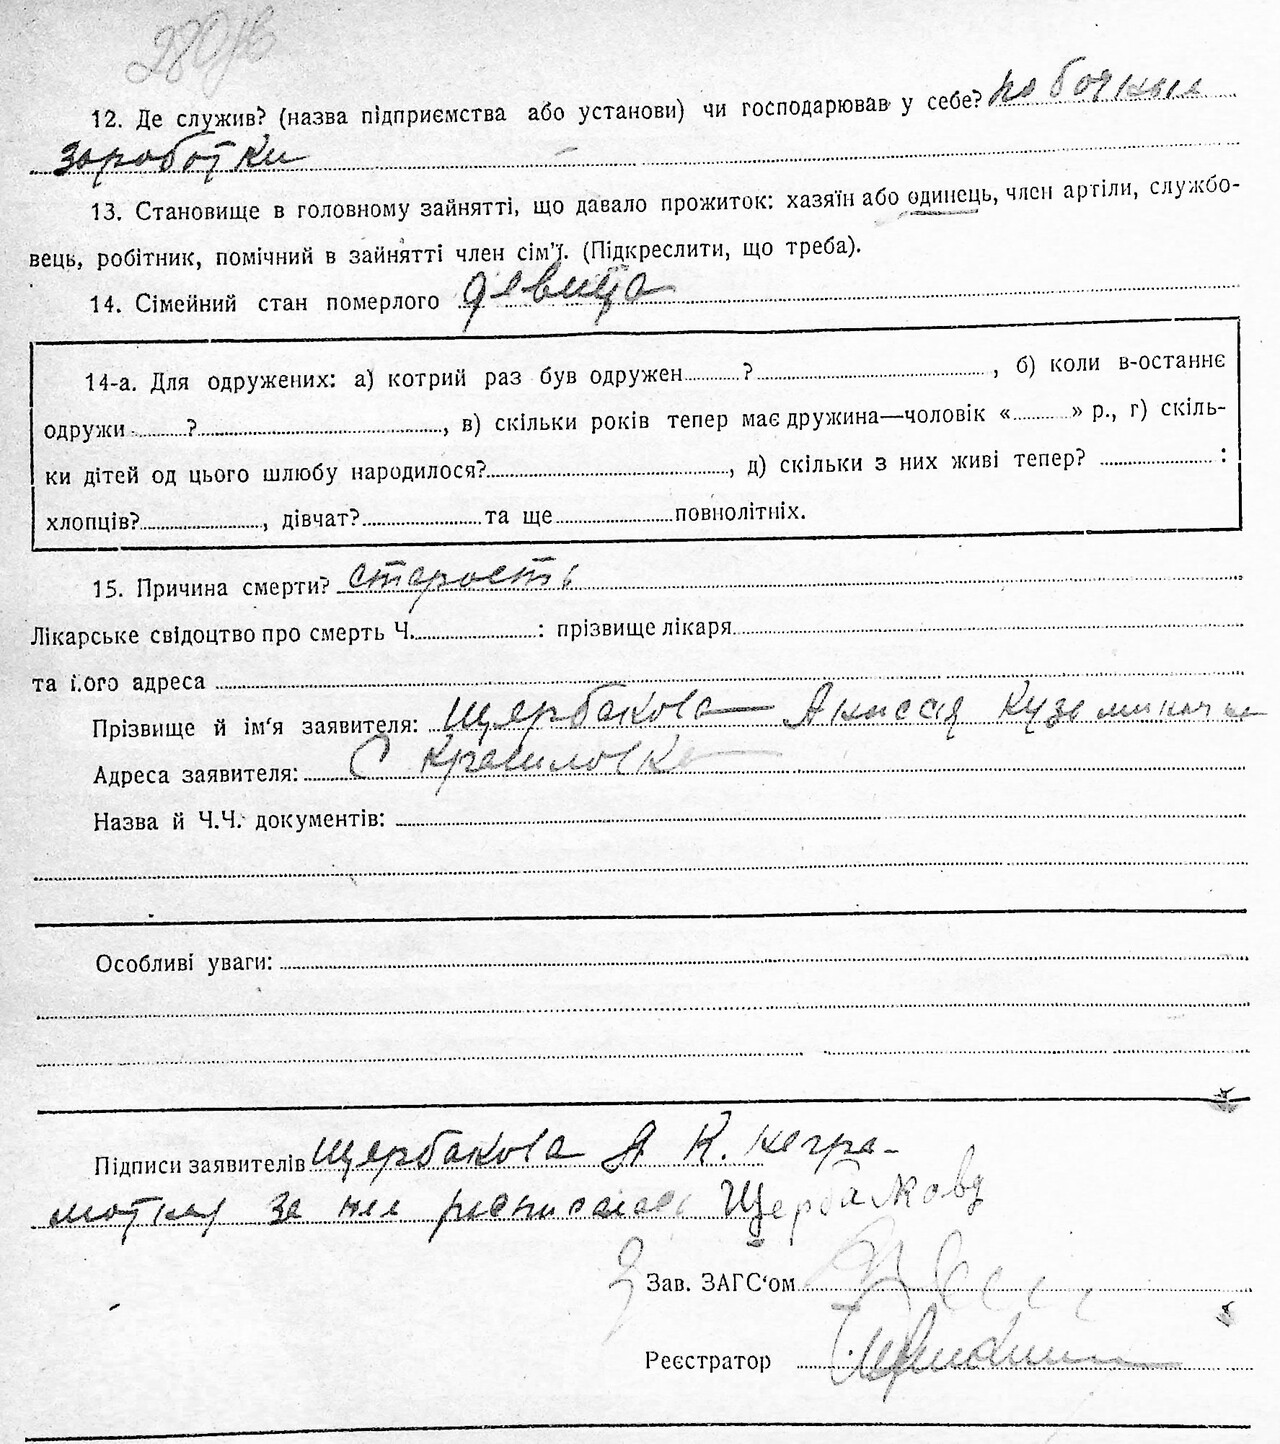 12. Де служив? (назва підприємства або установи) чи господарював у себе? побочные
зароботки
13. Становище в головному зайнятті, що давало прожиток: хазяїн або одинець, член артіли, службо-
вець, робітник, помічний в зайнятті член сім'ї. (Підкреслити, що треба).
14. Сімейний стан померлого девица
14-а. Для одружених: а) котрий раз був одружен ? , б) коли в-останнє
одружи- ? , в) скільки років тепер має дружина—чоловік « » р., г) скіль-
ки дітей од цього шлюбу народилося? , д) скільки з них живі тепер? :
хлопців? , дівчат? та ще повнолітніх.
15. Причина смерти? старость
Лікарське свідоцтво про смерть Ч. : прізвище лікаря
та його адреса
Прізвище й ім'я заявителя: Щербакова Анисия Кузьминична
Адреса заявителя: С Красиловка
Назва й Ч.Ч. документів:
Особливі уваги:
Підписи заявителів Щербакова А К. негра-
мотная за нее расписалась Щербакова
Зав. ЗАГС'ом
Реєстратор